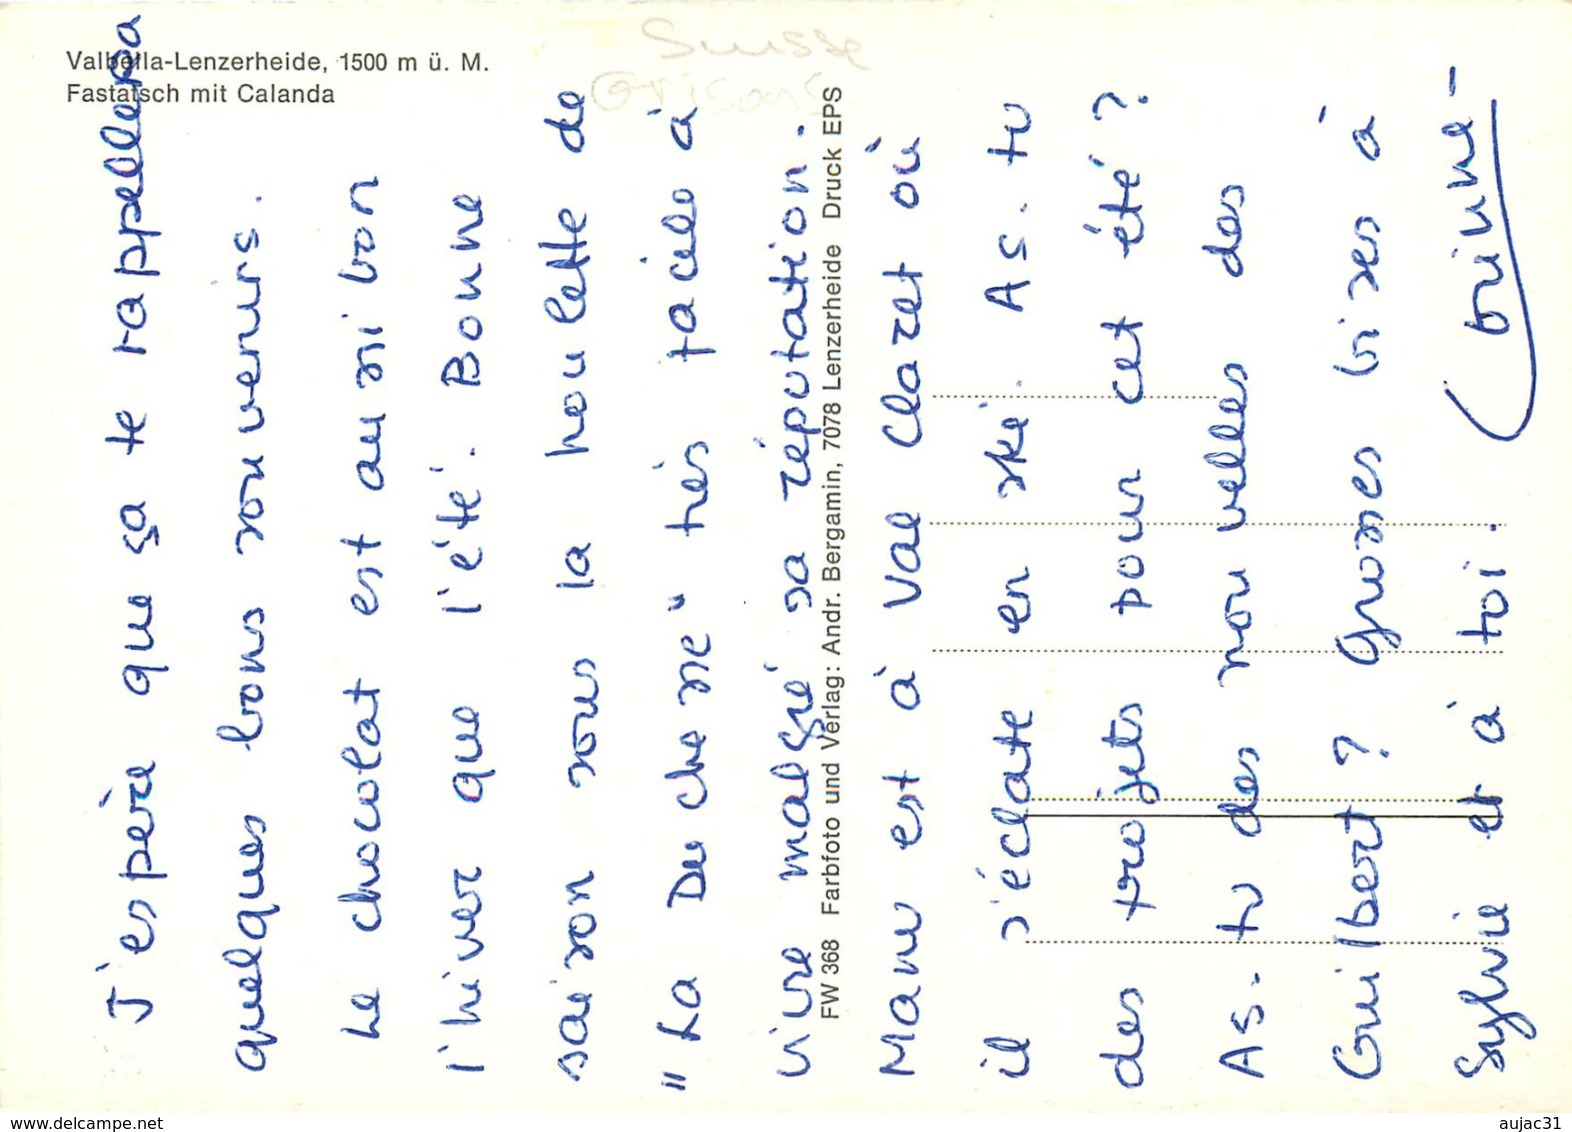 Valbella-Lenzerheide, 1500 m ü. M.
Fastatsch mit Calanda
Suisse
Grisons
J'espère que ça te rappellera
quelques bons souvenirs.
Le chocolat est aussi bon
l'hiver que l'été. Bonne
saison sous la houlette de
"La Duchesse" très facile à
vivre malgré sa réputation.
FW 368 Farbfoto und Verlag: Andr. Bergamin, 7078 Lenzerheide Druck EPS
Manu est à Val Claret où
il s'éclate en ski. As-tu
des projets pour cet été ?
As-tu des nouvelles des
Guilbert ? Grosses bises à
Sylvie et à toi.
www.delcampe.net
aujac31